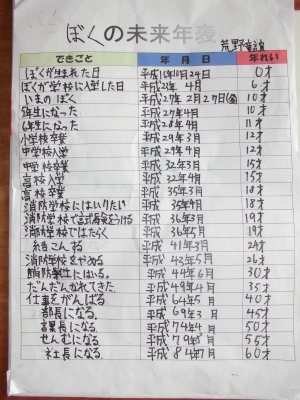 ぼくの未来年表
荒野
できごと 年月日 年れい
ぼくが生まれた日 平成10年10月24日 0才
ぼくが学校に入学した日 平成21年 4月 6才
いまのぼく 平成27年2月27日(金) 10才
5年生になった 平成27年4月 10才
6年生になった 平成28年4月 11才
小学校卒業 平成29年3月 12才
中学校入学 平成29年4月 12才
中学校卒業 平成32年3月 15才
高校入学 平成32年4月 15才
高校卒業 平成35年3月 18才
消防学校にはいりたい 平成35年4月 18才
消防学校で言式馬をうける 平成36年3月 19才
消防学校ではたらく 平成36年5月 19才
結こんする 平成41年3月 24才
消防学校をやめる 平成43年5月 26才
にはいる。 平成44年6月 30才
だんだんなれてきた。 平成49年4月 35才
仕事をがんばる 平成64年5月 40才
部長になる 平成69年3月 45才
課長になる 平成74年4月 50才
せんむになる 平成79年5月 55才
社長になる 平成84年7月 60才